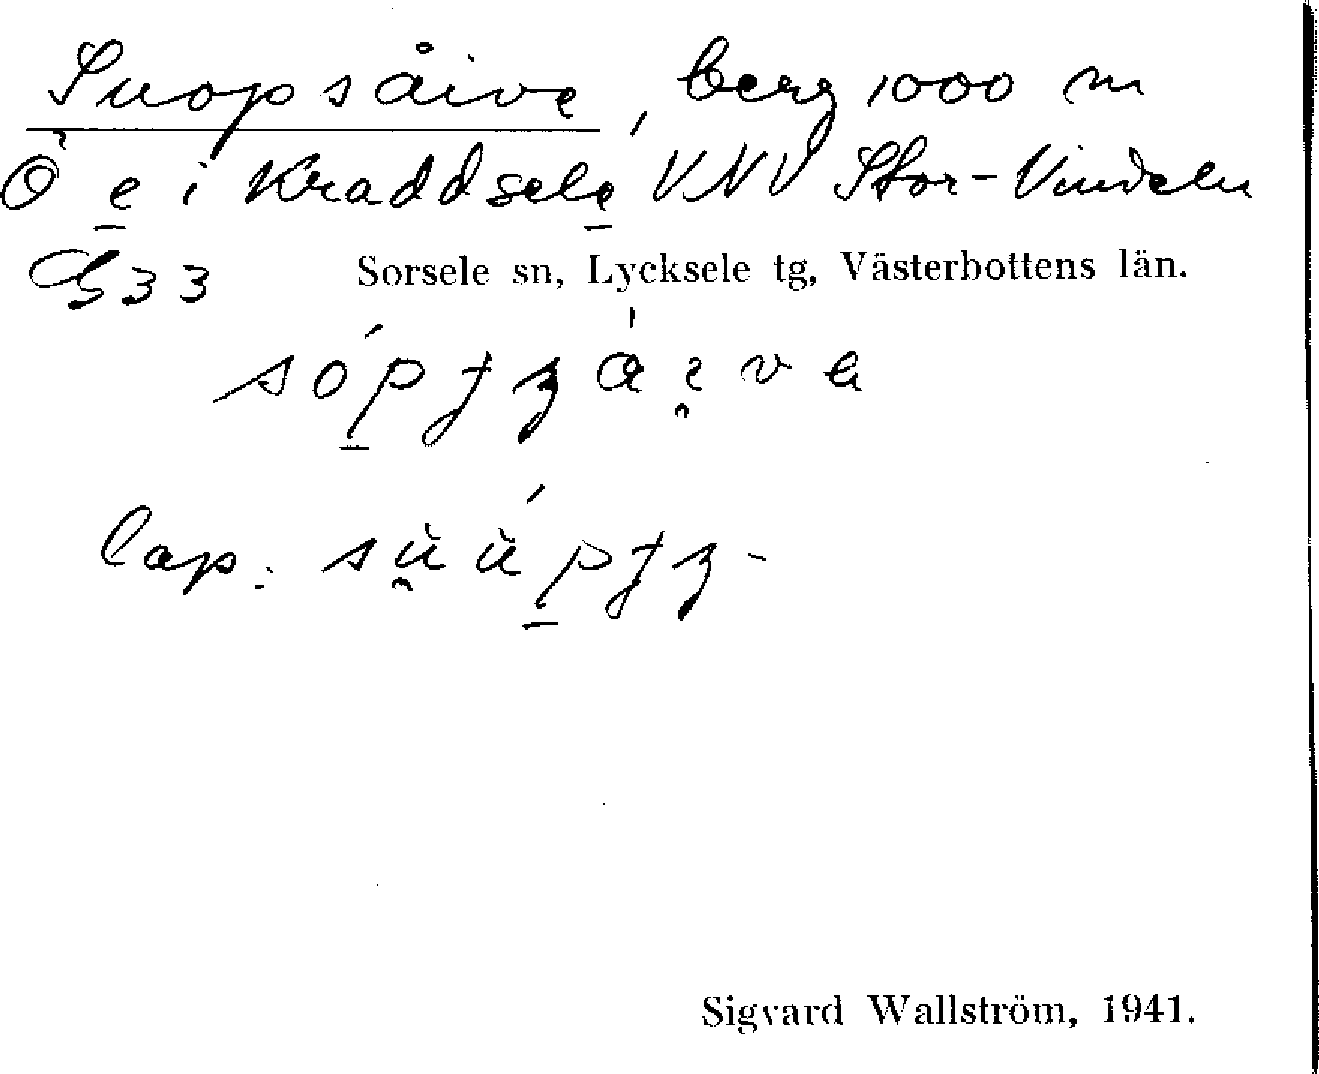 Suopsåive, berg 1000 m
Ö e i Kraddsele VNV Stor-Vindeln
G33 Sorsele sn, Lycksele tg, Västerbottens län.
lap.
Sigvard Wallström, 1941.